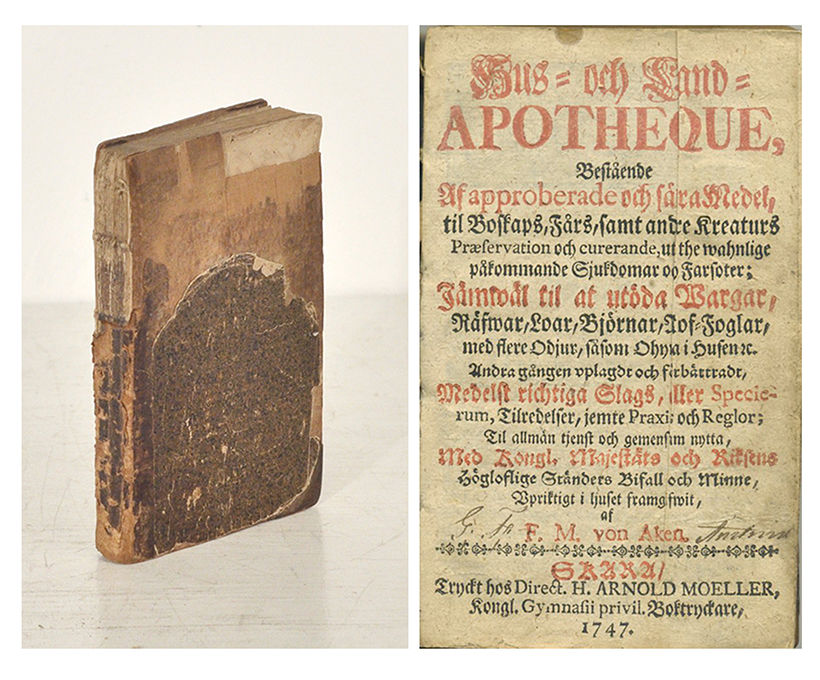 Hus- och Land-
APOTHEQUE,
Bestående
Af approberade och såra Medel,
til Boskaps, Fårs, samt andre Kreaturs
Præservation och curerande, ut the wahnlige
påkommande Sjukdomar oç Farsoter;
Jämwäl til at utöda Wargar,
Räfwar, Loar, Björnar, Rof-Foglar,
med flere Odjur, såsom Ohyra i Husen ꝛc.
Andra gången uplagdt och förbättradt,
Medelst richtiga Slags, eller Specie-
rum, Tilredelser, jemte Praxi; och Reglor;
Til allmän tjenst och gemensam nytta,
Med Kongl. Majestäts och Riksens
Högloflige Ständers Bifall och Minne,
Upriktigt i ljuset framgifwit,
af
G. F. F. M. von Aken.
SKARA/
Tryckt hos Direct. H. ARNOLD MOELLER,
Kongl. Gymnasii privil. Boktryckare,
1747.